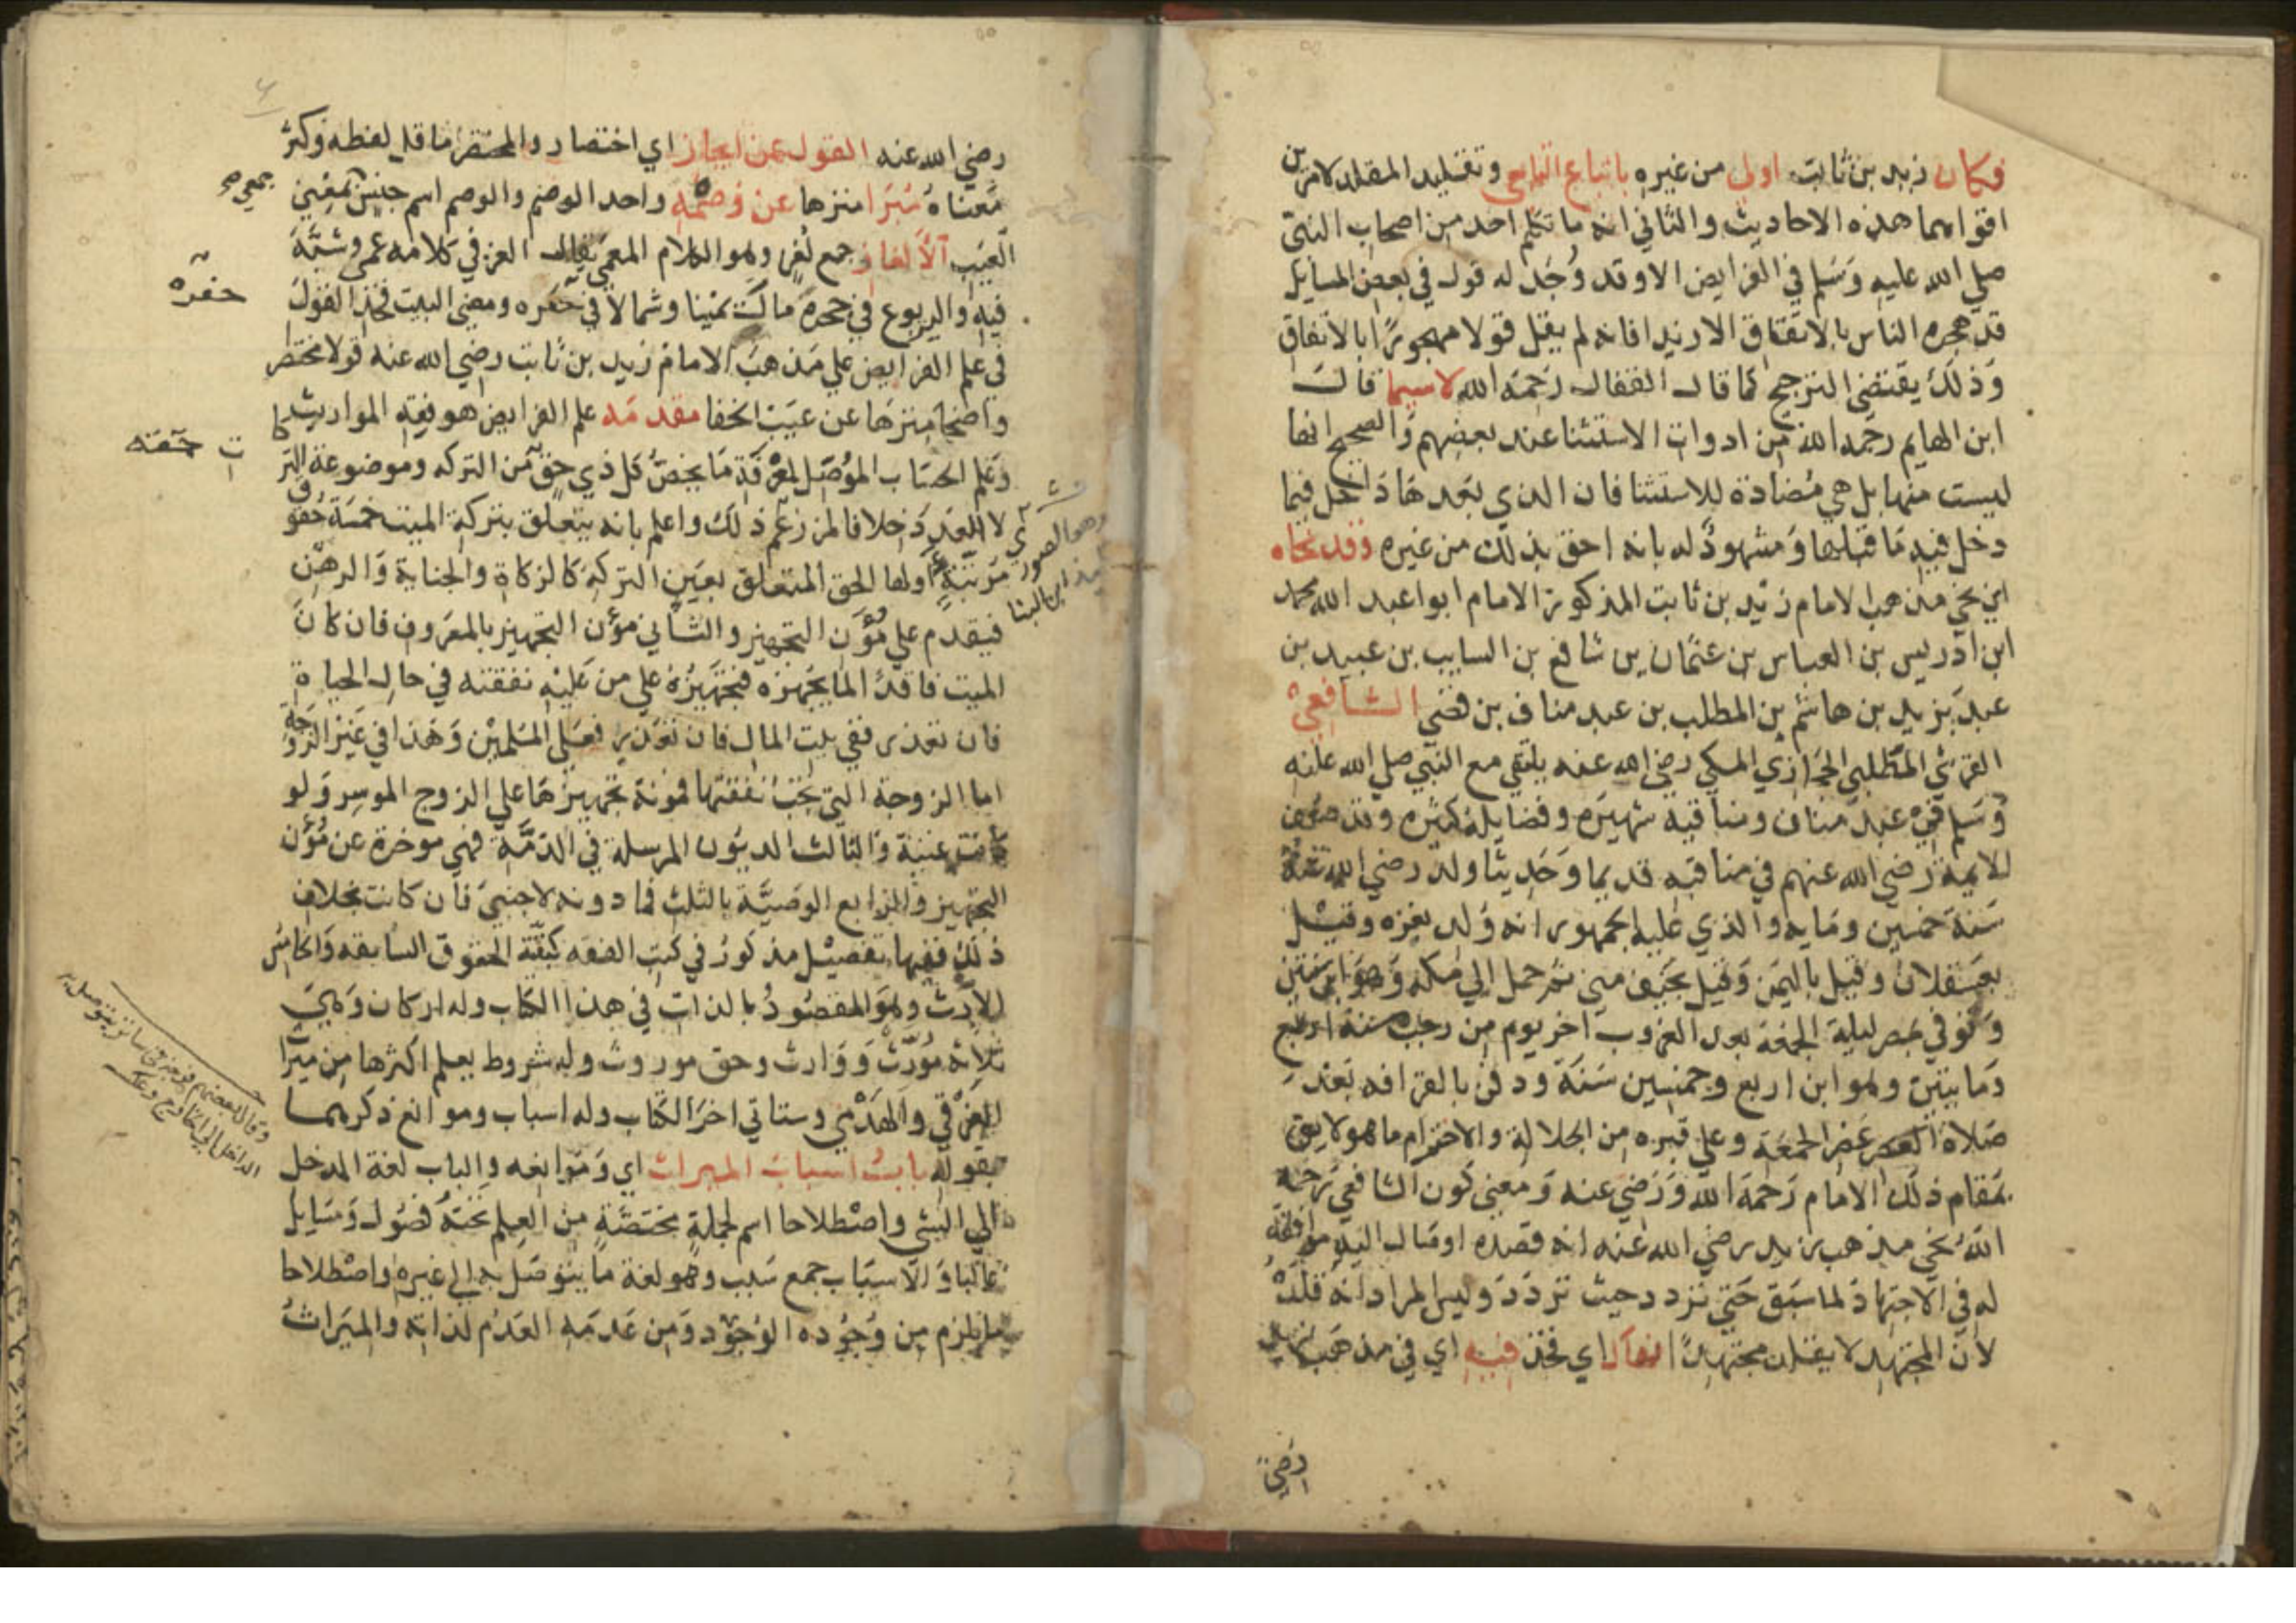 فكان زيد بن ثابت اولى من غيره باتباع التابعي وتقليد المقلد لامرين
اقواهما هذه الاحاديث والثاني انه ما تكلم احد من اصحاب النبي
صلي الله عليه وسلم في الفرايض الا وقد وجد له قول في بعض المسايل
قد هجره الناس بالاتفاق الا زيدا فانه لم يقل قولا مهجورا بالاتفاق
وذلك يقتضي الترجيح كما قال القفال رحمه الله لاسيما قال
ابن الهايم رحمه الله من ادوات الاستثنا عند بعضهم والصحيح انها
ليست منها بل هي مضادة للاستثنا فان الذي بعدها داخل فيما
دخل فيه ما قبلها ومشهود له بانه احق بذلك من غيره وقد نحاه
اي نحي مذهب الامام زيد بن ثابت المذكور الامام ابوا عبد الله محمد
ابن ادريس بن العباس بن عثمان بن شافع بن السايب بن عبيد بن
عبد يزيد بن هاشم بن المطلب بن عبد مناف بن قصي الشافعي
القرشي المطلبي الحجازي المكي رضي الله عنه يلتقي مع النبي صلي الله عليه
وسلم في عبد مناف ومناقبه شهيره وفضايله كثيره وقد صنف
الايمة رضي الله عنهم في مناقبه قديما وحديثا ولد رضي الله عنه
سنة خمسين ومايه والذي عليه الجمهور انه ولد بغزه وقيل
بعسقلان وقيل باليمن وقيل بخيف مني ثم حمل الي مكه وهو ابن سنتين
وتوفي بمصر ليلة الجمعة بعد الغروب اخر يوم من رجب سنة اربع
ومايتين وهو ابن اربع وخمسين سنة ودفن بالقرافه بعد
صلاة العصر عصر الجمعة وعلي قبره من الجلالة والاحترام ما هو لايق
بمقام ذلك الامام رحمه الله ورضي عنه ومعني كون الشافعي رحمه
الله نحي مذهب زيد رضي الله عنه انه قصده او مال اليه موافقة
له في الاجتهاد لما سبق حتي تردد حيث تردد وليس المراد انه قلده
لان المجتهد لا يقلد مجتهدا فهاك اي فخذ فيه اي في مذهب زيد
رضي
رضي الله عنه القول عن ايجاز اي اختصار والمختصر ما قل لفظه وكثر
معناه مبرا منزها عن وصمه واحد الوصم والوصم اسم جنس بمعني
العيب الالغاز جمع لغز وهو الكلام المعمي يقال الغز في كلامه عمي وشبه
فيه واليربوع في جحره مال يمينا وشمالا في حفره ومعني البيت فخذ القول
في علم الفرايض علي مذهب الامام زيد بن ثابت رضي الله عنه قولا مختصرا
واضحا منزها عن عيب الخفا مقدمه علم الفرايض هو فقه المواريث
وعلم الحساب الموصل لمعرفة ما يخص كل ذي حق من التركه وموضوعه التركات
لا العدد خلافا لمن زعم ذلك واعلم بانه يتعلق بتركة الميت خمسة حقوق
مرتبة اولها الحق المتعلق بعين التركه كالزكاة والجناية والرهن
فيقدم علي مؤن التجهيز والثاني مؤن التجهيز بالمعروف فان كان
الميت فاقدا لما يجهزه فتجهيزه علي من عليه نفقته في حال الحياة
فان تعذر ففي بيت المال فان تعذر فعلى المسلمين وهذا في غير الزوجة
اما الزوجة التي تجب نفقتها فمونة تجهيزها علي الزوج الموسر ولو
كانت غنية والثالث الديون المرسلة في الذمة فهي موخرة عن مؤن
التجهيز والرابع الوصية بالثلث فما دونه لاجنبي فان كانت بخلاف
ذلك ففيها تفصيل مذكور في كتب الفقه كبقية الحقوق السابقه والخامس
الارث وهو المقصود بالذات في هذا الكتاب وله اركان وهي
ثلاثة مورث ووارث وحق موروث وله شروط يعلم اكثرها من ميراث
الغرقي والهدمي وستاتي اخر الكتاب وله اسباب وموانع ذكرهما
بقوله باب اسباب الميراث اي وموانعه والباب لغة المدخل
الي الشي واصطلاحا اسم لجملة مختصة من العلم تحته فصول ومسايل
غالبا والاسباب جمع سبب وهو لغة ما يتوصل به الي غيره واصطلاحا
ما يلزم من وجوده الوجود ومن عدمه العدم لذاته والميراث
حفره